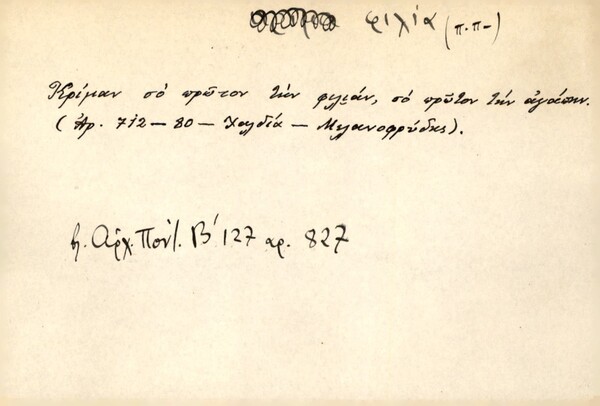 φιλία (π.π-)
Κρίμαν σό πρῶτον τήν φιλίαν, σό πρῶτον τήν ἀγάπην.
(Ἀρ. 712 - 80 - Χαλδία - Μελανοφρύδης).
β. Ἀρχ. Πόντ. Β' 127 αρ. 827